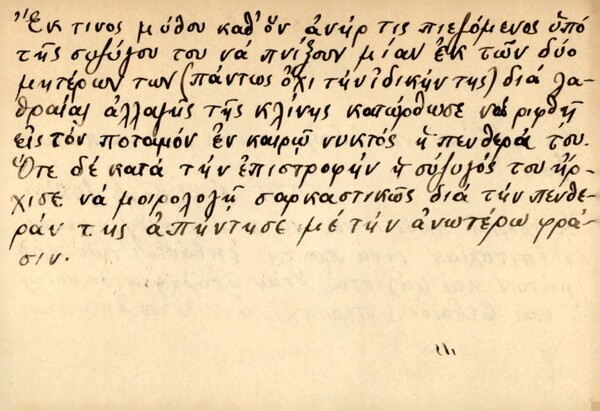 Ἔκ τινος μύθου καθ' ὅν ἀνήρ τις πιεζόμενος ὑπό
τῆς συζύγου του νά πνίξουν μίαν ἐκ τῶν δύο
μητέρων των (πάντως ὄχι τήν ἰδικήν της) διά λα-
θραίας ἀλλαγῆς τῆς κλίνης κατώρθωσε νά ριφθῇ
εἰς τόν ποταμόν ἐν καιρῷ νυκτός ἡ πενθερά του.
Ὅτε δέ κατά τήν ἐπιστροφήν ἡ σύζυγός του ἤρ-
χισε νά μοιρολογῇ σαρκαστικῶς διά τήν πενθε-
ράν της ἀπήντησε μέ τήν ἀνωτέρω φρά-
σιν.